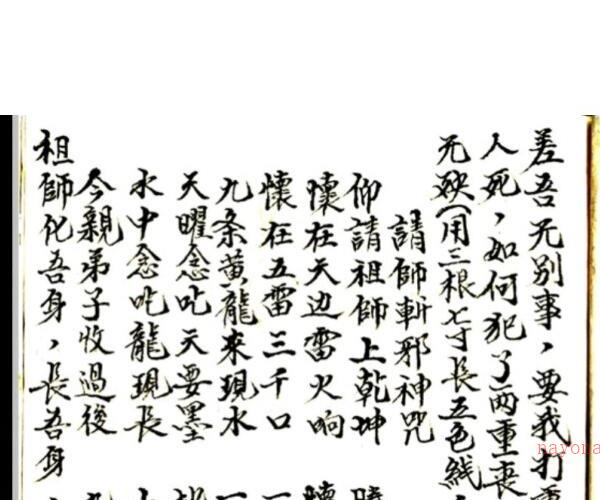 差吾无别事，要我打重
人死，如何犯了两重丧
无殃（用三根七寸长五色线
請師斬邪神咒
仰請祖師上乾坤
懷在天边雷火响
懷在五雷三千口
九条黄龍来現水
天曜念叱天要墨
水中念叱龍現長
今親弟子收過後
祖師化吾身，長吾身
nayona